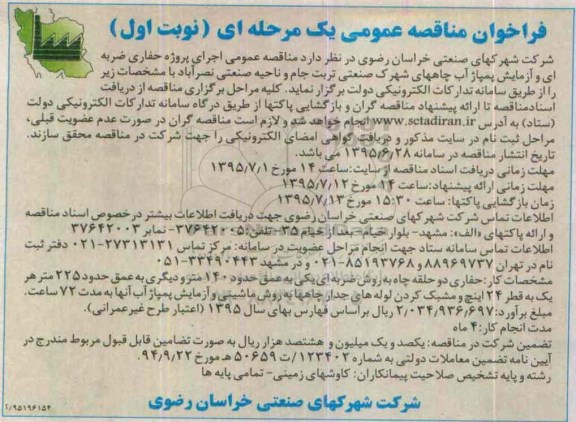 فراخوان مناقصه عمومی یک مرحله ای (نوبت اول)
شرکت شهرکهای صنعتی خراسان رضوی در نظر دارد مناقصه عمومی اجرای پروژه حفاری ضربه
ای و آزمایش پمپاژ آب چاههای شهرک صنعتی تربت جام و ناحیه صنعتی نصرآباد با مشخصات زیر
را از طریق سامانه تدارکات الکترونیکی دولت برگزار نماید. کلیه مراحل برگزاری مناقصه از دریافت
اسنادمناقصه تا ارائه پیشنهاد مناقصه گران و بازگشایی پاکتها از طریق درگاه سامانه تدارکات الکترونیکی دولت
(ستاد) به آدرس www.setadiran.ir انجام خواهد شد و لازم است مناقصه گران در صورت عدم عضویت قبلی،
مراحل ثبت نام در سایت مذکور و دریافت گواهی امضای الکترونیکی را جهت شرکت در مناقصه محقق سازند.
تاریخ انتشار مناقصه در سامانه ۱۳۹۵/۶/۲۸ می باشد.
مهلت زمانی دریافت اسناد مناقصه از سایت:ساعت ۱۴ مورخ ۱۳۹۵/۷/۱
مهلت زمانی ارائه پیشنهاد:ساعت ۱۴ مورخ ۱۳۹۵/۷/۱۲
زمان بازگشایی پاکتها: ساعت ۱۵:۳۰ مورخ ۱۳۹۵/۷/۱۳
اطلاعات تماس شرکت شهرکهای صنعتی خراسان رضوی جهت دریافت اطلاعات بیشتر درخصوص اسناد مناقصه
و ارائه پاکتهای «الف»: مشهد- بلوار خیام- بعد از خیام ۳۵- تلفن: ۵-۳۷۶۴۲۰۰۰ نمابر ۳۷۶۴۲۰۰۳
اطلاعات تماس سامانه ستاد جهت انجام مراحل عضویت در سامانه: مرکز تماس ۲۷۳۱۳۱۳۱-۰۲۱ دفتر ثبت
نام در تهران ۸۸۹۶۹۷۳۷ و ۸۵۱۹۳۷۶۸-۰۲۱ و در مشهد ۳۳۴۹۰۴۴۳-۰۵۱
مشخصات کار: حفاری دو حلقه چاه به روش ضربه ای یکی به عمق حدود ۱۴۰ متر و دیگری به عمق حدود ۲۲۵ متر هر
یک به قطر ۲۴ اینچ و مشبک کردن لوله های جدار چاهها به روش ماشینی و آزمایش پمپاژ آب آنها به مدت ۷۲ ساعت.
مبلغ برآورد: ۲/۰۳۴/۹۳۶/۶۹۷ ریال براساس فهارس بهای سال ۱۳۹۵ (اعتبار طرح غیرعمرانی).
مدت انجام کار: ۴ ماه
تضمین شرکت در مناقصه: یکصد و یک میلیون و هشتصد هزار ریال به صورت تضامین قابل قبول مربوط مندرج در
آیین نامه تضمین معاملات دولتی به شماره ۱۲۳۴۰۲/ت ۵۰۶۵۹ هـ مورخ ۹۴/۹/۲۲.
رشته و پایه تشخیص صلاحیت پیمانکاران: کاوشهای زمینی- تمامی پایه ها
شرکت شهرکهای صنعتی خراسان رضوی
۹۵۱۹۶۱۵۴/آ